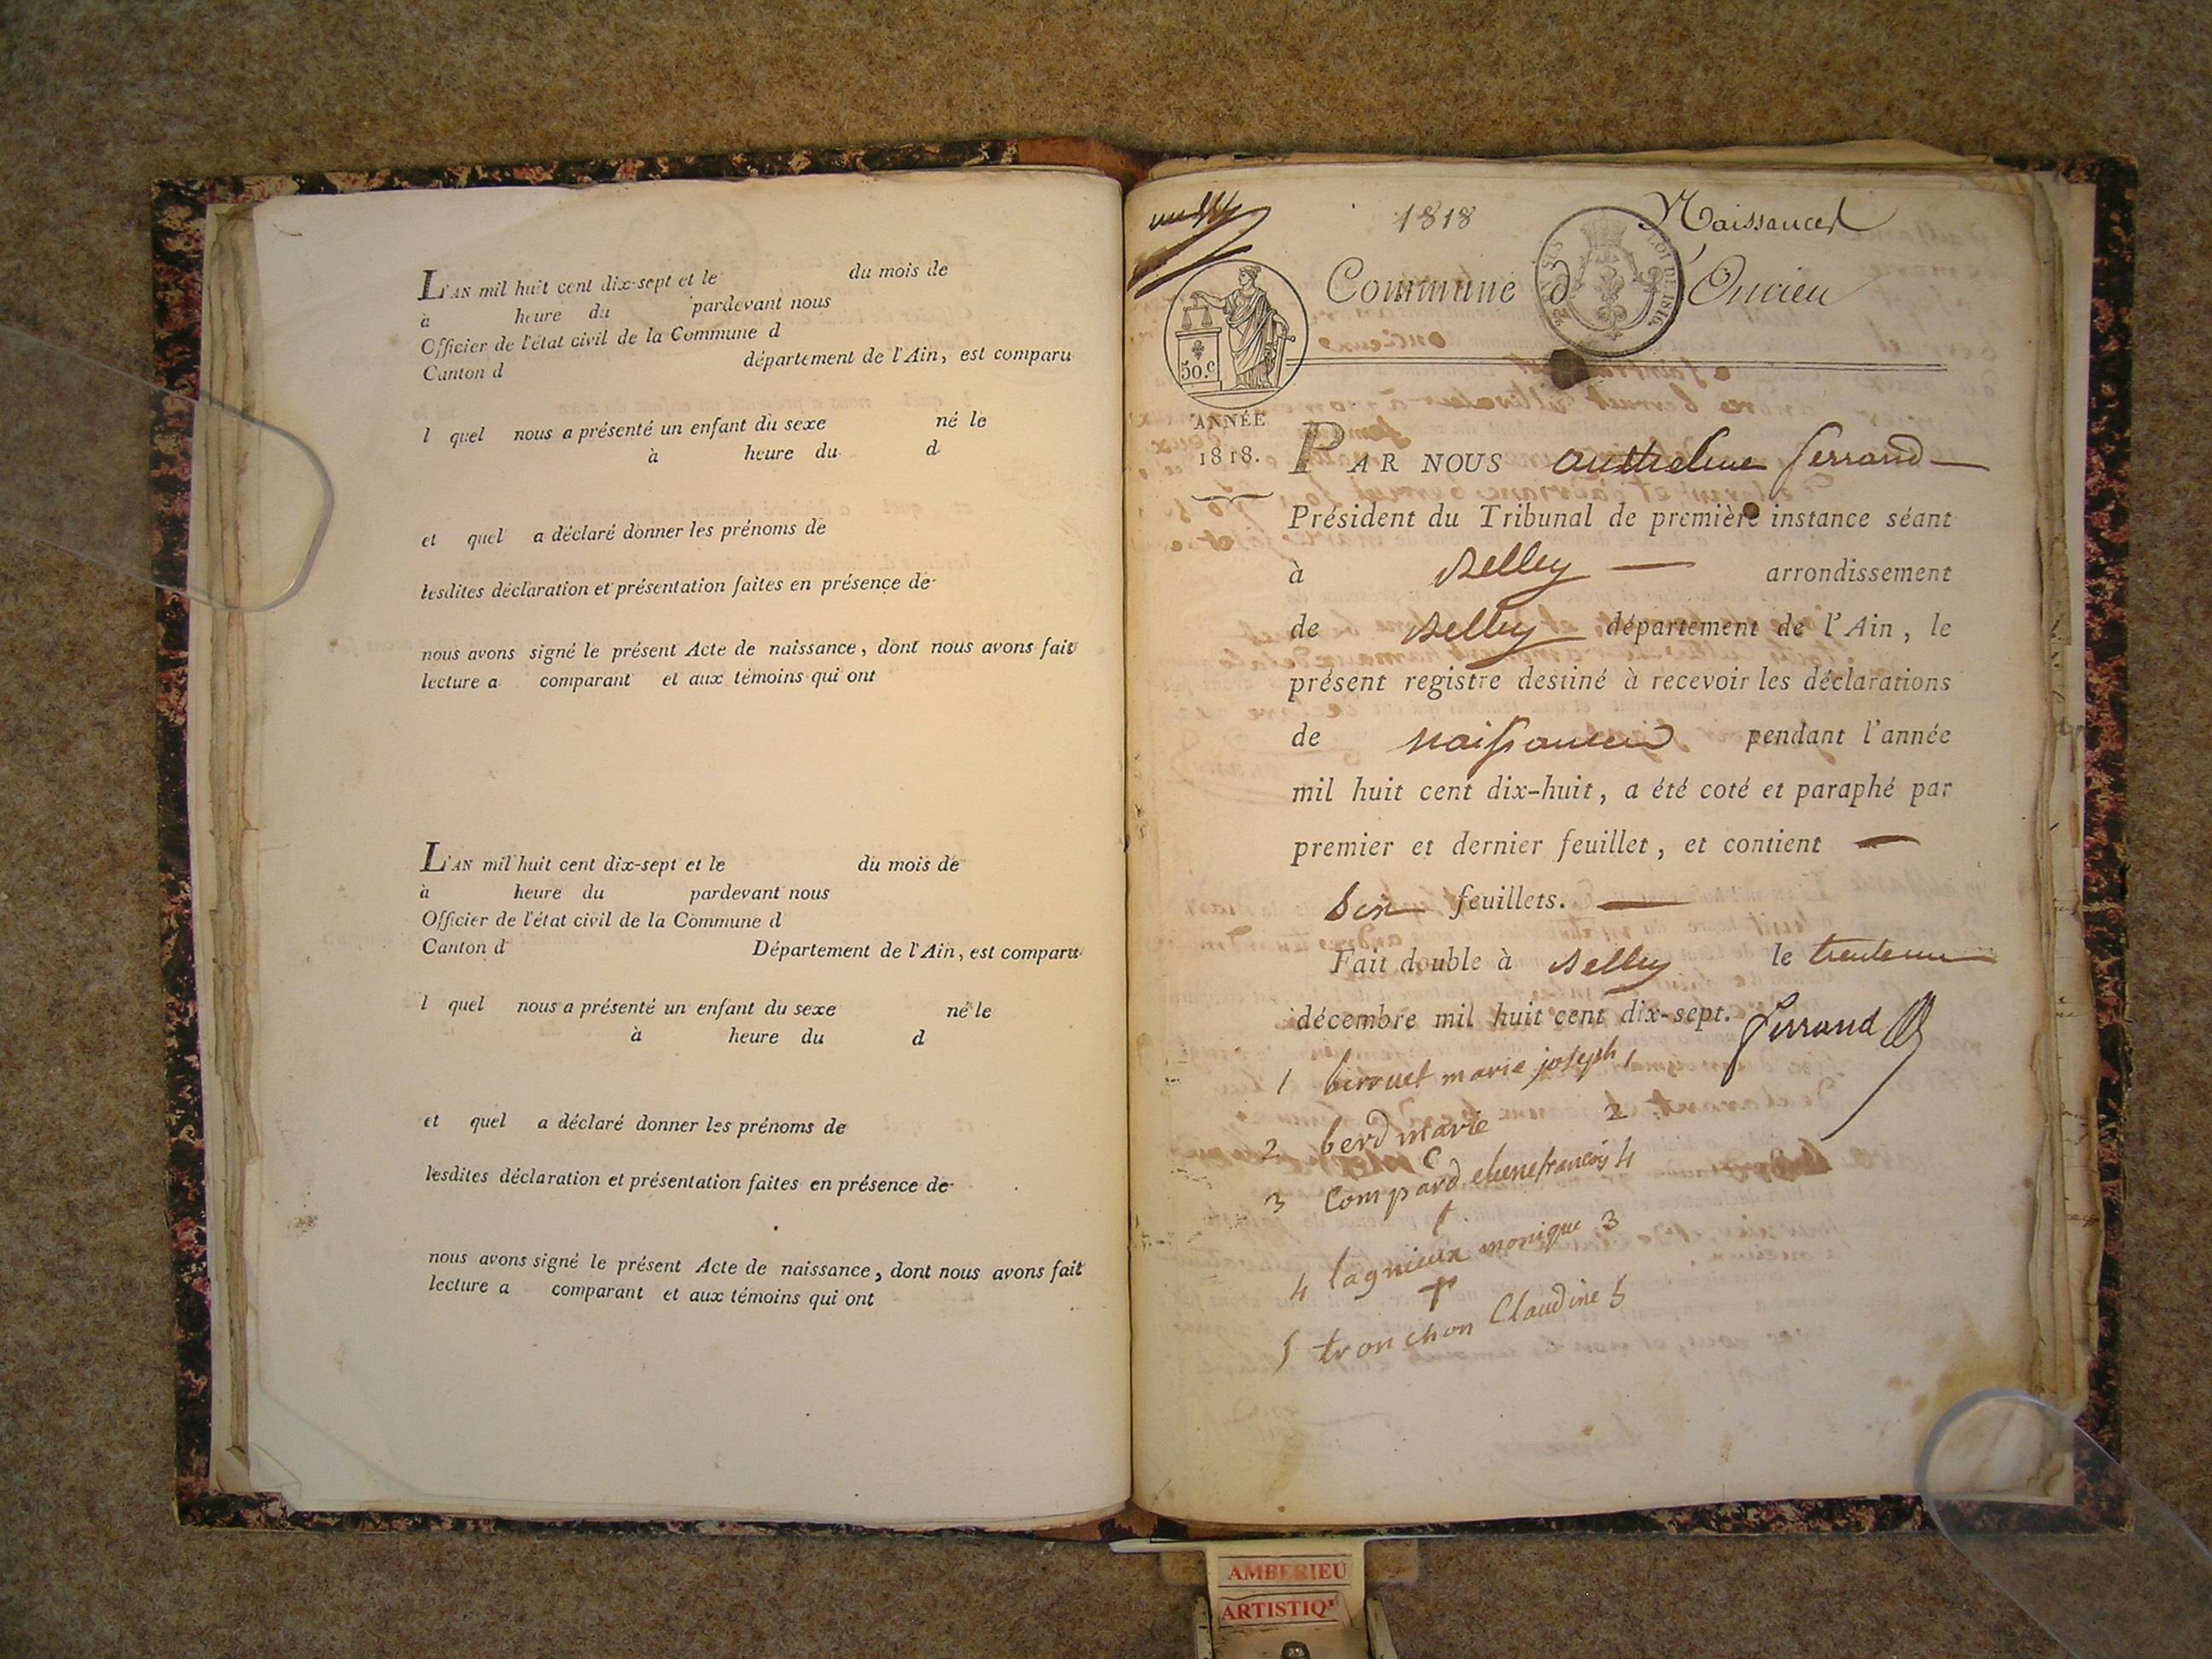 L'AN mil huit cent dix-sept et le du mois de
à heure du pardevant nous
Officier de l'état civil de la Commune d
Canton d département de l'Ain, est comparu
l quel nous a présenté un enfant du sexe né le
à heure du d
et quel a déclaré donner les prénoms de
lesdites déclaration et présentation faites en présence de
nous avons signé le présent Acte de naissance, dont nous avons fait
lecture a comparant et aux témoins qui ont
L'AN mil huit cent dix-sept et le du mois de
à heure du pardevant nous
Officier de l'état civil de la Commune d
Canton d Département de l'Ain, est comparu
l quel nous a présenté un enfant du sexe né le
à heure du d
et quel a déclaré donner les prénoms de
lesdites déclaration et présentation faites en présence de
nous avons signé le présent Acte de naissance, dont nous avons fait
lecture a comparant et aux témoins qui ont
1818 Naissances
Commune d'Oncieu
50.c
LOI DE 1816.
ANNÉE
1818.
PAR NOUS anthelme ferrand
Président du Tribunal de première instance séant
à Belley arrondissement
de Belley département de l'Ain, le
présent registre destiné à recevoir les déclarations
de naissances pendant l'année
mil huit cent dix-huit, a été coté et paraphé par
premier et dernier feuillet, et contient
six feuillets.
Fait double à Belley le trente un
décembre mil huit cent dix-sept. ferrand
1 berruet marie joseph 1
2 berd marie 2
3 Compard etienne françois 4
4 lagnieux monique 3
5 tronchon Claudine 5
AMBERIEU
ARTISTIQ'